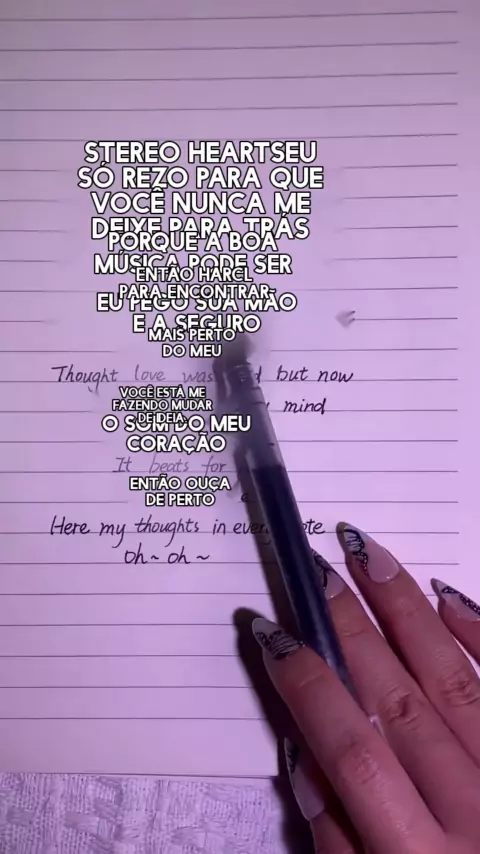 STEREO HEARTSEU
SÓ REZO PARA QUE
VOCÊ NUNCA ME
DEIXE PARA TRÁS
PORQUE A BOA
MÚSICA PODE SER
ENTÃO
PARA ENCONTRAR
EU PEGO SUA MÃO
E A SEGURO
MAIS PERTO
DO MEU
Thought love was but now
VOCÊ ESTÁ ME
FAZENDO MUDAR
DE IDEIA
mind
O SOM DO MEU
CORAÇÃO
It beats for
ENTÃO OUÇA
DE PERTO
a
Here my thoughts in every note
oh~ oh~